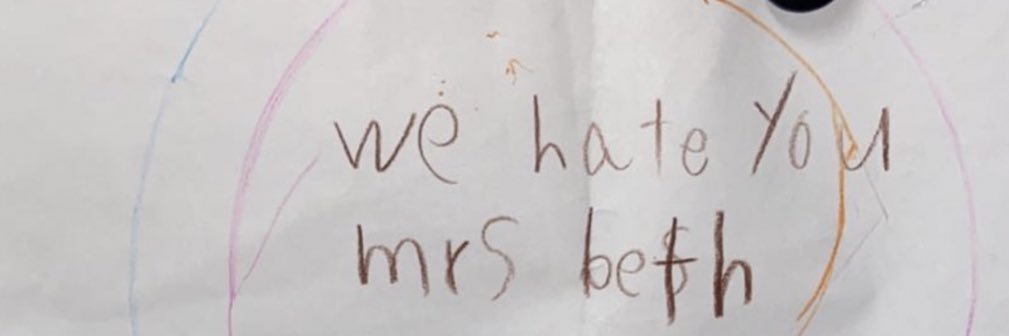 we hate you
mrs beth